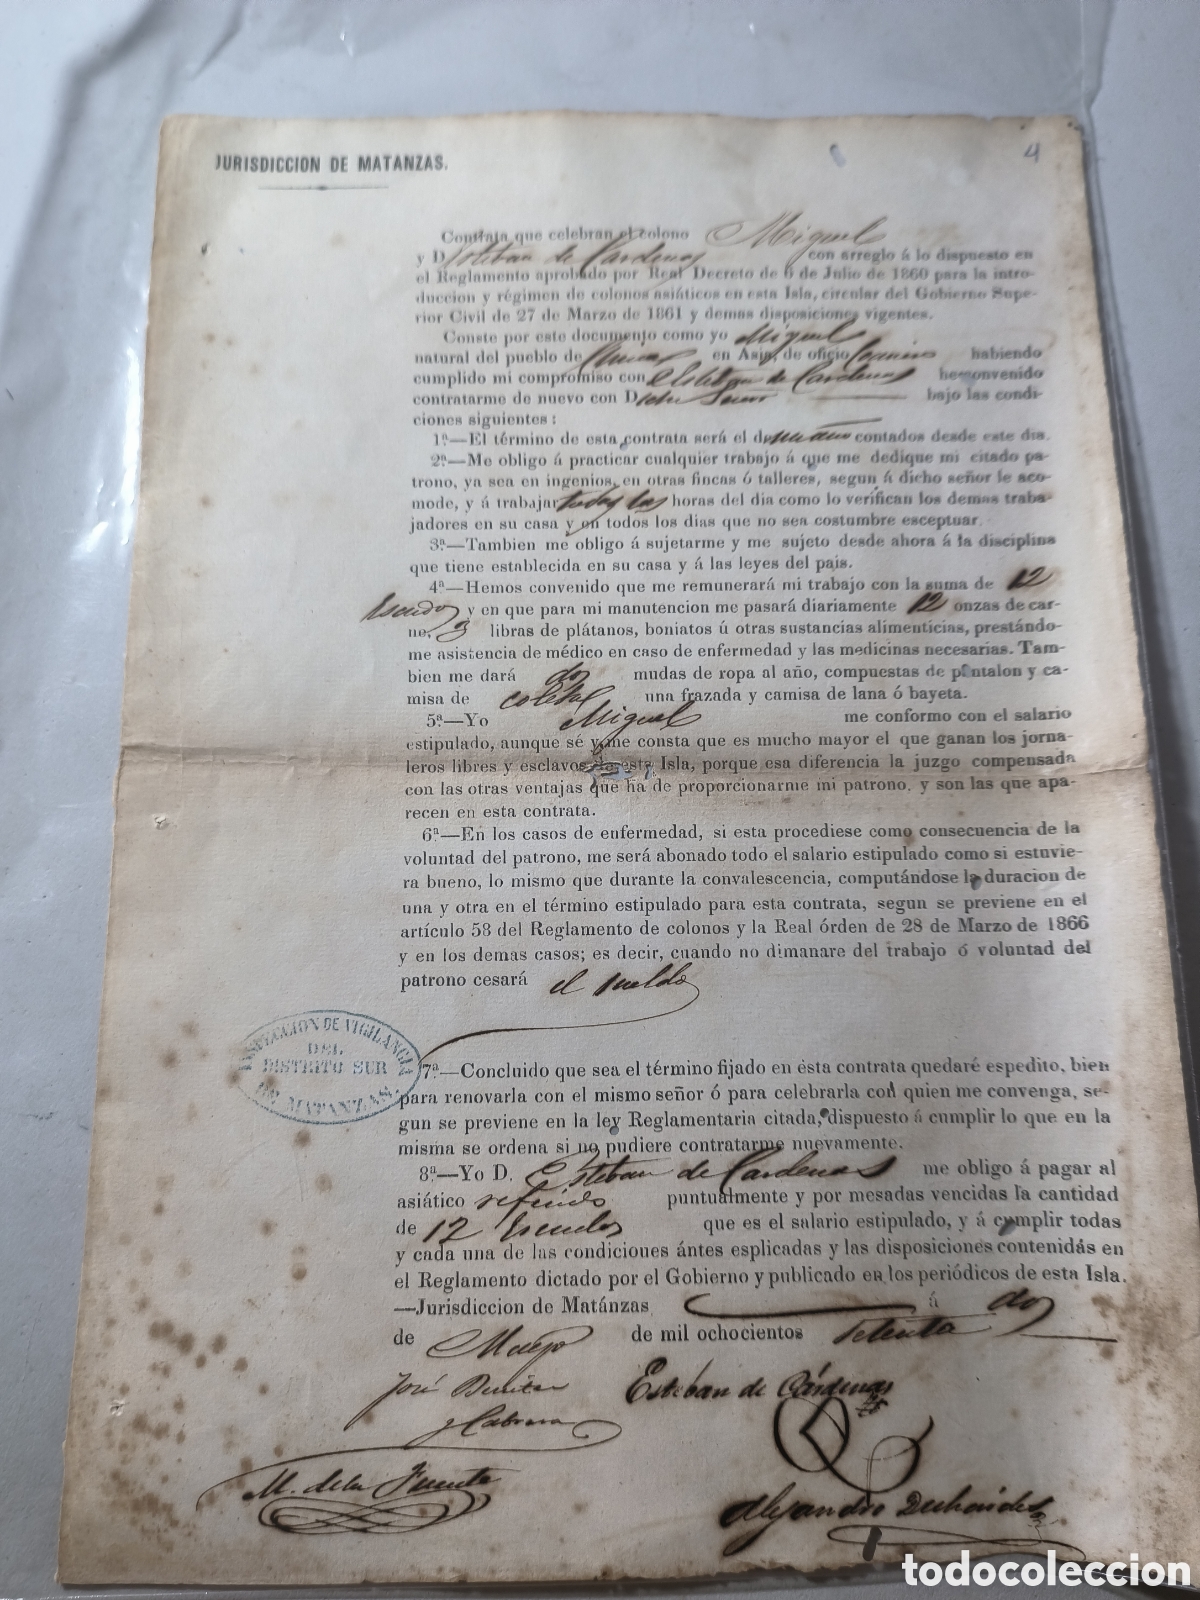 JURISDICCION DE MATANZAS.
4
Contrata que celebran el colono Miguel
y D. Esteban de Cardenas con arreglo á lo dispuesto en
el Reglamento aprobado por Real Decreto de 6 de Julio de 1860 para la intro-
duccion y régimen de colonos asiáticos en esta Isla, circular del Gobierno Supe-
rior Civil de 27 de Marzo de 1861 y demas disposiciones vigentes.
Conste por este documento como yo Miguel
natural del pueblo de en Asia, de oficio habiendo
cumplido mi compromiso con D. Esteban de Cardenas he convenido
contratarme de nuevo con D. dicho Señor bajo las condi-
ciones siguientes:
1ª.—El término de esta contrata será el de un año contados desde este dia.
2ª.—Me obligo á practicar cualquier trabajo á que me dedique mi citado pa-
trono, ya sea en ingenios, en otras fincas ó talleres, segun á dicho señor le aco-
mode, y á trabajar todas las horas del dia como lo verifican los demas traba-
jadores en su casa y en todos los dias que no sea costumbre esceptuar.
3ª.—Tambien me obligo á sujetarme y me sujeto desde ahora á la disciplina
que tiene establecida en su casa y á las leyes del pais.
4ª—Hemos convenido que me remunerará mi trabajo con la suma de 12
Escudos y en que para mi manutencion me pasará diariamente 12 onzas de car-
ne, 3 libras de plátanos, boniatos ú otras sustancias alimenticias, prestándo-
me asistencia de médico en caso de enfermedad y las medicinas necesarias. Tam-
bien me dará dos mudas de ropa al año, compuestas de pantalon y ca-
misa de coleta una frazada y camisa de lana ó bayeta.
5ª.—Yo Miguel me conformo con el salario
estipulado, aunque sé y me consta que es mucho mayor el que ganan los jorna-
leros libres y esclavos de esta Isla, porque esa diferencia la juzgo compensada
con las otras ventajas que ha de proporcionarme mi patrono, y son las que apa-
recen en esta contrata.
6ª—En los casos de enfermedad, si esta procediese como consecuencia de la
voluntad del patrono, me será abonado todo el salario estipulado como si estuvie-
ra bueno, lo mismo que durante la convalescencia, computándose la duracion de
una y otra en el término estipulado para esta contrata, segun se previene en el
artículo 58 del Reglamento de colonos y la Real órden de 28 de Marzo de 1866
y en los demas casos; es decir, cuando no dimanare del trabajo ó voluntad del
patrono cesará el sueldo
INSPECCION DE VIGILANCIA
DEL
DISTRITO SUR
DE MATANZAS.
7ª—Concluido que sea el término fijado en esta contrata quedaré espedito, bien
para renovarla con el mismo señor ó para celebrarla con quien me convenga, se-
gun se previene en la ley Reglamentaria citada, dispuesto á cumplir lo que en la
misma se ordena si no pudiere contratarme nuevamente.
8ª—Yo D. Esteban de Cardenas me obligo á pagar al
asiático referido puntualmente y por mesadas vencidas la cantidad
de 12 Escudos que es el salario estipulado, y á cumplir todas
y cada una de las condiciones ántes esplicadas y las disposiciones contenidas en
el Reglamento dictado por el Gobierno y publicado en los periódicos de esta Isla.
—Jurisdiccion de Matánzas á dos
de Mayo de mil ochocientos setenta
José Benitez Esteban de Cárdenas
y Cabrera
M. de la Fuente
Alejandro
todocoleccion